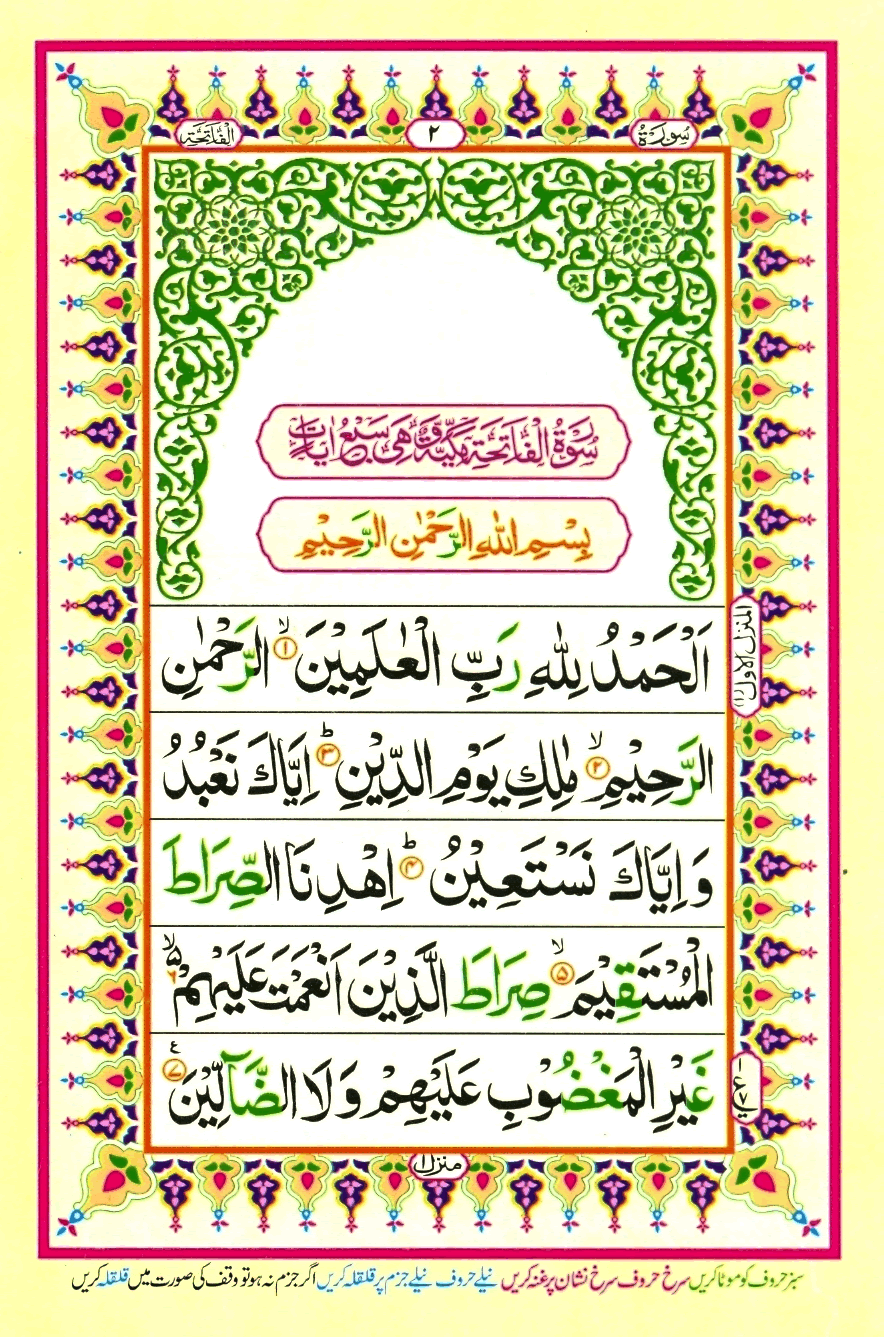 سُوْرَةُ ٢ الْفَاتِحَة
سُوْرَةُ الْفَاتِحَةِ مَكِّيَّةٌ وَّهِيَ سَبْعُ اٰيَاتٍ
بِسْمِ اللّٰهِ الرَّحْمٰنِ الرَّحِيْمِ
اَلْحَمْدُ لِلّٰهِ رَبِّ الْعٰلَمِيْنَ ۙ‏ ١ الرَّحْمٰنِ
الرَّحِيْمِ ۙ‏ ٢ مٰلِكِ يَوْمِ الدِّيْنِ ؕ‏ ٣ اِيَّاكَ نَعْبُدُ
وَ اِيَّاكَ نَسْتَعِيْنُ ؕ‏ ٤ اِهْدِنَا الصِّرَاطَ
الْمُسْتَقِيْمَ ۙ‏ ٥ صِرَاطَ الَّذِيْنَ اَنْعَمْتَ عَلَيْهِمْ ۙ ۵ ٦
غَيْرِ الْمَغْضُوْبِ عَلَيْهِمْ وَ لَا الضَّآلِّيْنَ ٧ ع
المنزل الاول ﴿١﴾
منزل ١
سبز حروف کو موٹا کریں سرخ حروف سرخ نشان پر غنہ کریں نیلے حروف نیلے جزم پر قلقلہ کریں اگر جزم نہ ہو تو وقف کی صورت میں قلقلہ کریں